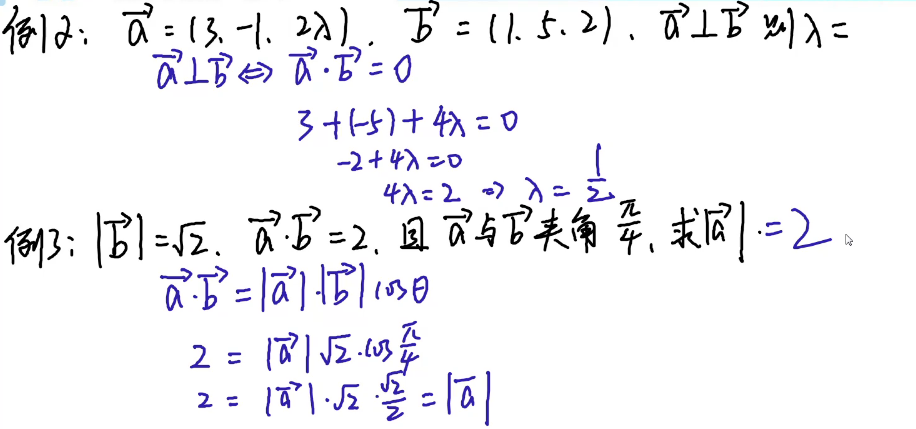 例2: a⃗ = (3. -1. 2λ). b⃗ = (1. 5. 2). a⃗⊥b⃗ 则λ=
a⃗⊥b⃗ ⇔ a⃗·b⃗ = 0
3+(-5)+4λ=0
-2+4λ=0
4λ=2 ⇒ λ=1/2
例3: |b⃗|=√2. a⃗·b⃗=2. 且 a⃗与b⃗夹角 π/4. 求|a⃗|.=2
a⃗·b⃗=|a⃗|·|b⃗|cosθ
2 = |a⃗|√2·cos π/4
2 = |a⃗|·√2·√2/2 = |a⃗|